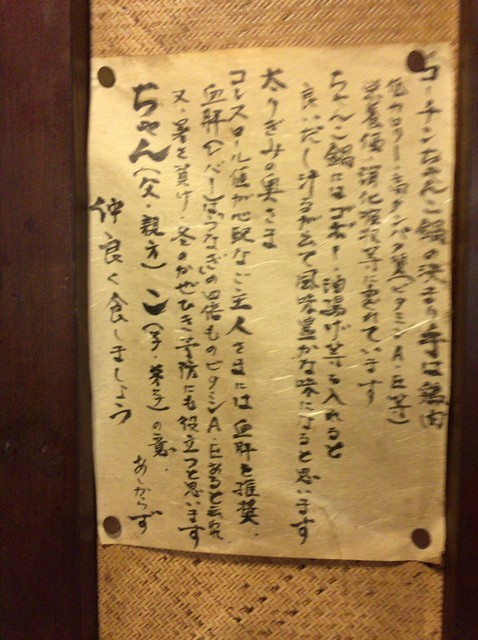 コーチンちゃんこ鍋の決まり手は鶏肉
低カロリー・高タンパク質(ビタミンA・E等)
栄養価・消化吸収等に優れています
ちゃんこ鍋にはゴボー・油揚げ等を入れると
良いだし汁が出て風味豊かな味になると思います
太りぎみの奥さま
コレステロール値が心配なご主人さまには血肝を推奨
血肝(レバー)はうなぎの倍ものビタミンA・Eあると云われ
又、暑さ負け・冬のかぜひき予防にも役立つと思います
ちゃん(父・親方)こ(子・弟子)の意
あしからず
仲良く食しましょう